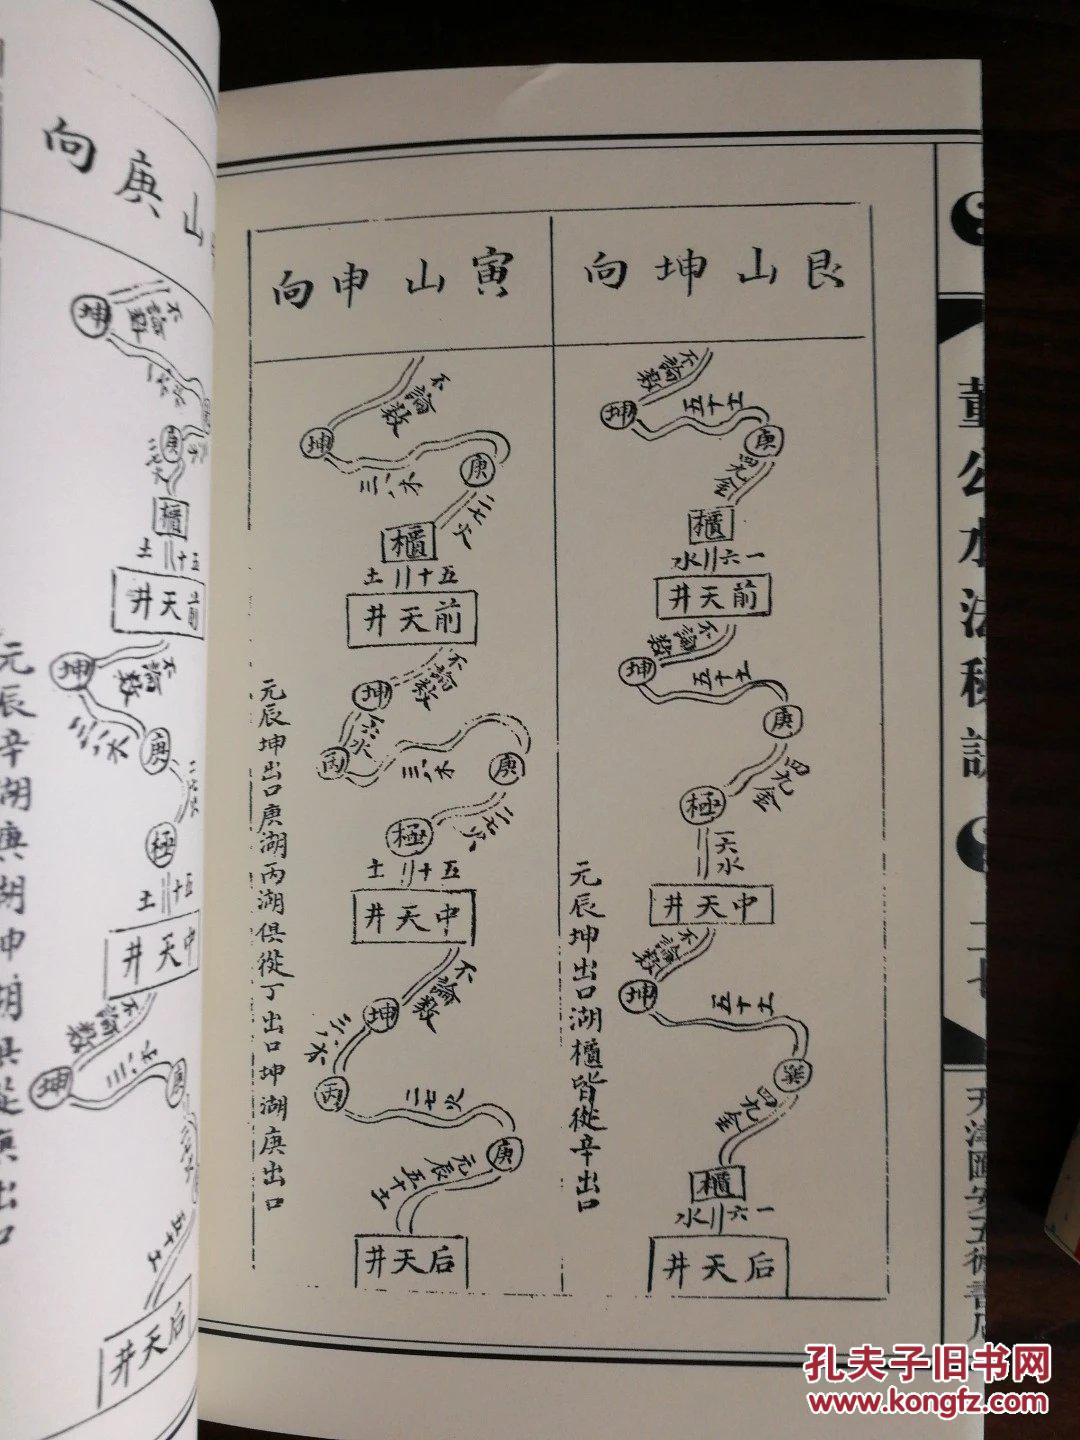 艮山坤向
不論數
坤
五十土
庚
四九金
櫃
一六水
前天井
不論數
坤
五十土
庚
四九金
極
一六水
中天井
不論數
坤
五十土
四九金
櫃
一六水
后天井
元辰坤出口湖櫃皆從辛出口
寅山申向
不論數
坤
三八木
庚
二七火
櫃
五十土
前天井
不論數
坤
一六水
丙
三八木
庚
二七火
極
五十土
中天井
不論數
坤
三八木
丙
二七火
庚
元辰
五十土
后天井
元辰坤出口庚湖丙湖俱從丁出口坤湖庚出口
山庚向
不論數
坤
庚
二七火
櫃
五十土
前天井
不論數
坤
三八木
庚
二七火
極
五十土
中天井
不論數
坤
三八木
庚
五十土
后天井
元辰辛湖庚湖坤湖俱從庚出口
董公水法秘訣
二七
孔夫子旧书网
www.kongfz.com